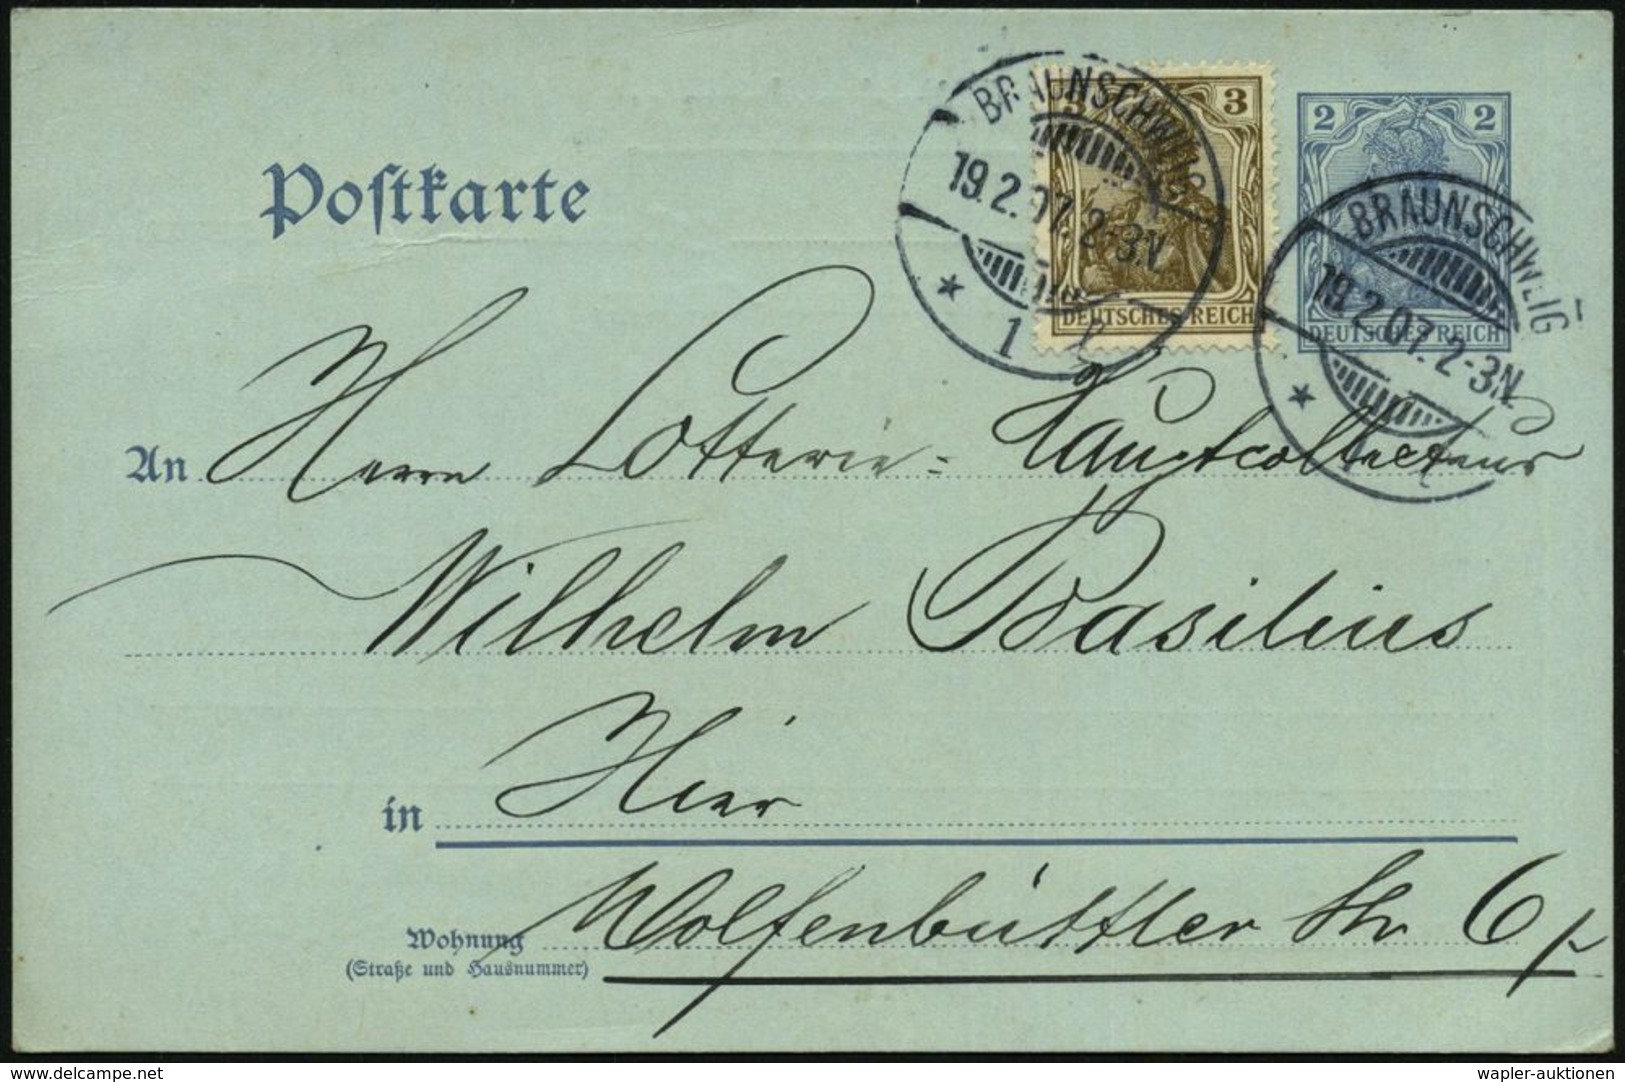 Postkarte
BRAUNSCHWEIG
19.2.07. 2-3N.
* 1
3
DEUTSCHES REICH
2 2
DEUTSCHES REICH
BRAUNSCHWEIG
19.2.07. 2-3N.
*
An Herrn Lotterie= Hauptcollecteur
Wilhelm Basilius
in Hier
Wohnung Wolfenbüttler Str 6
(Straße und Hausnummer)
www.delcampe.net
wapler-auktionen